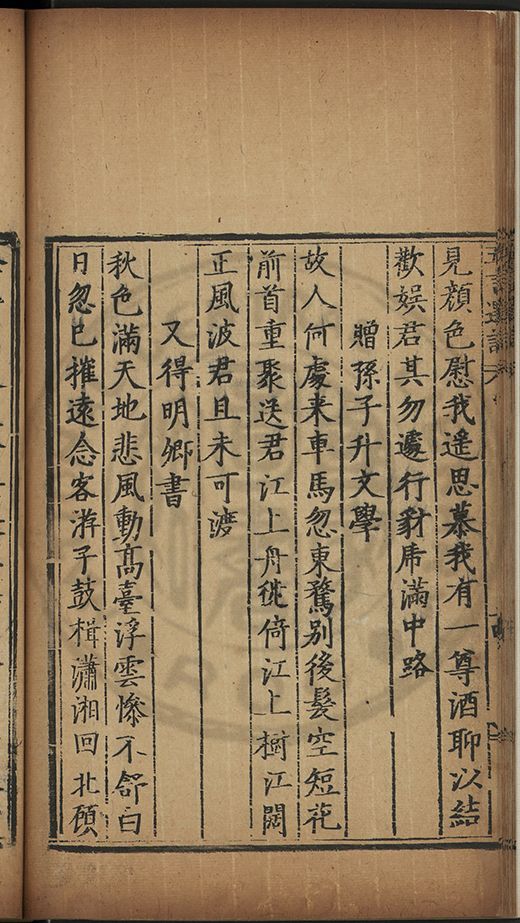 見顔色慰我遙思慕我有一尊酒聊以結
歡娱君其勿遽行豺虎滿中路
贈孫子升文學
故人何處来車馬忽東騖别後髪空短花
前首重聚送君江上舟徙倚江上樹江闊
正風波君且未可渡
又得明卿書
秋色滿天地悲風動髙臺浮雲慘不舒白
日忽已摧遠念客游子鼓楫瀟湘回北顧